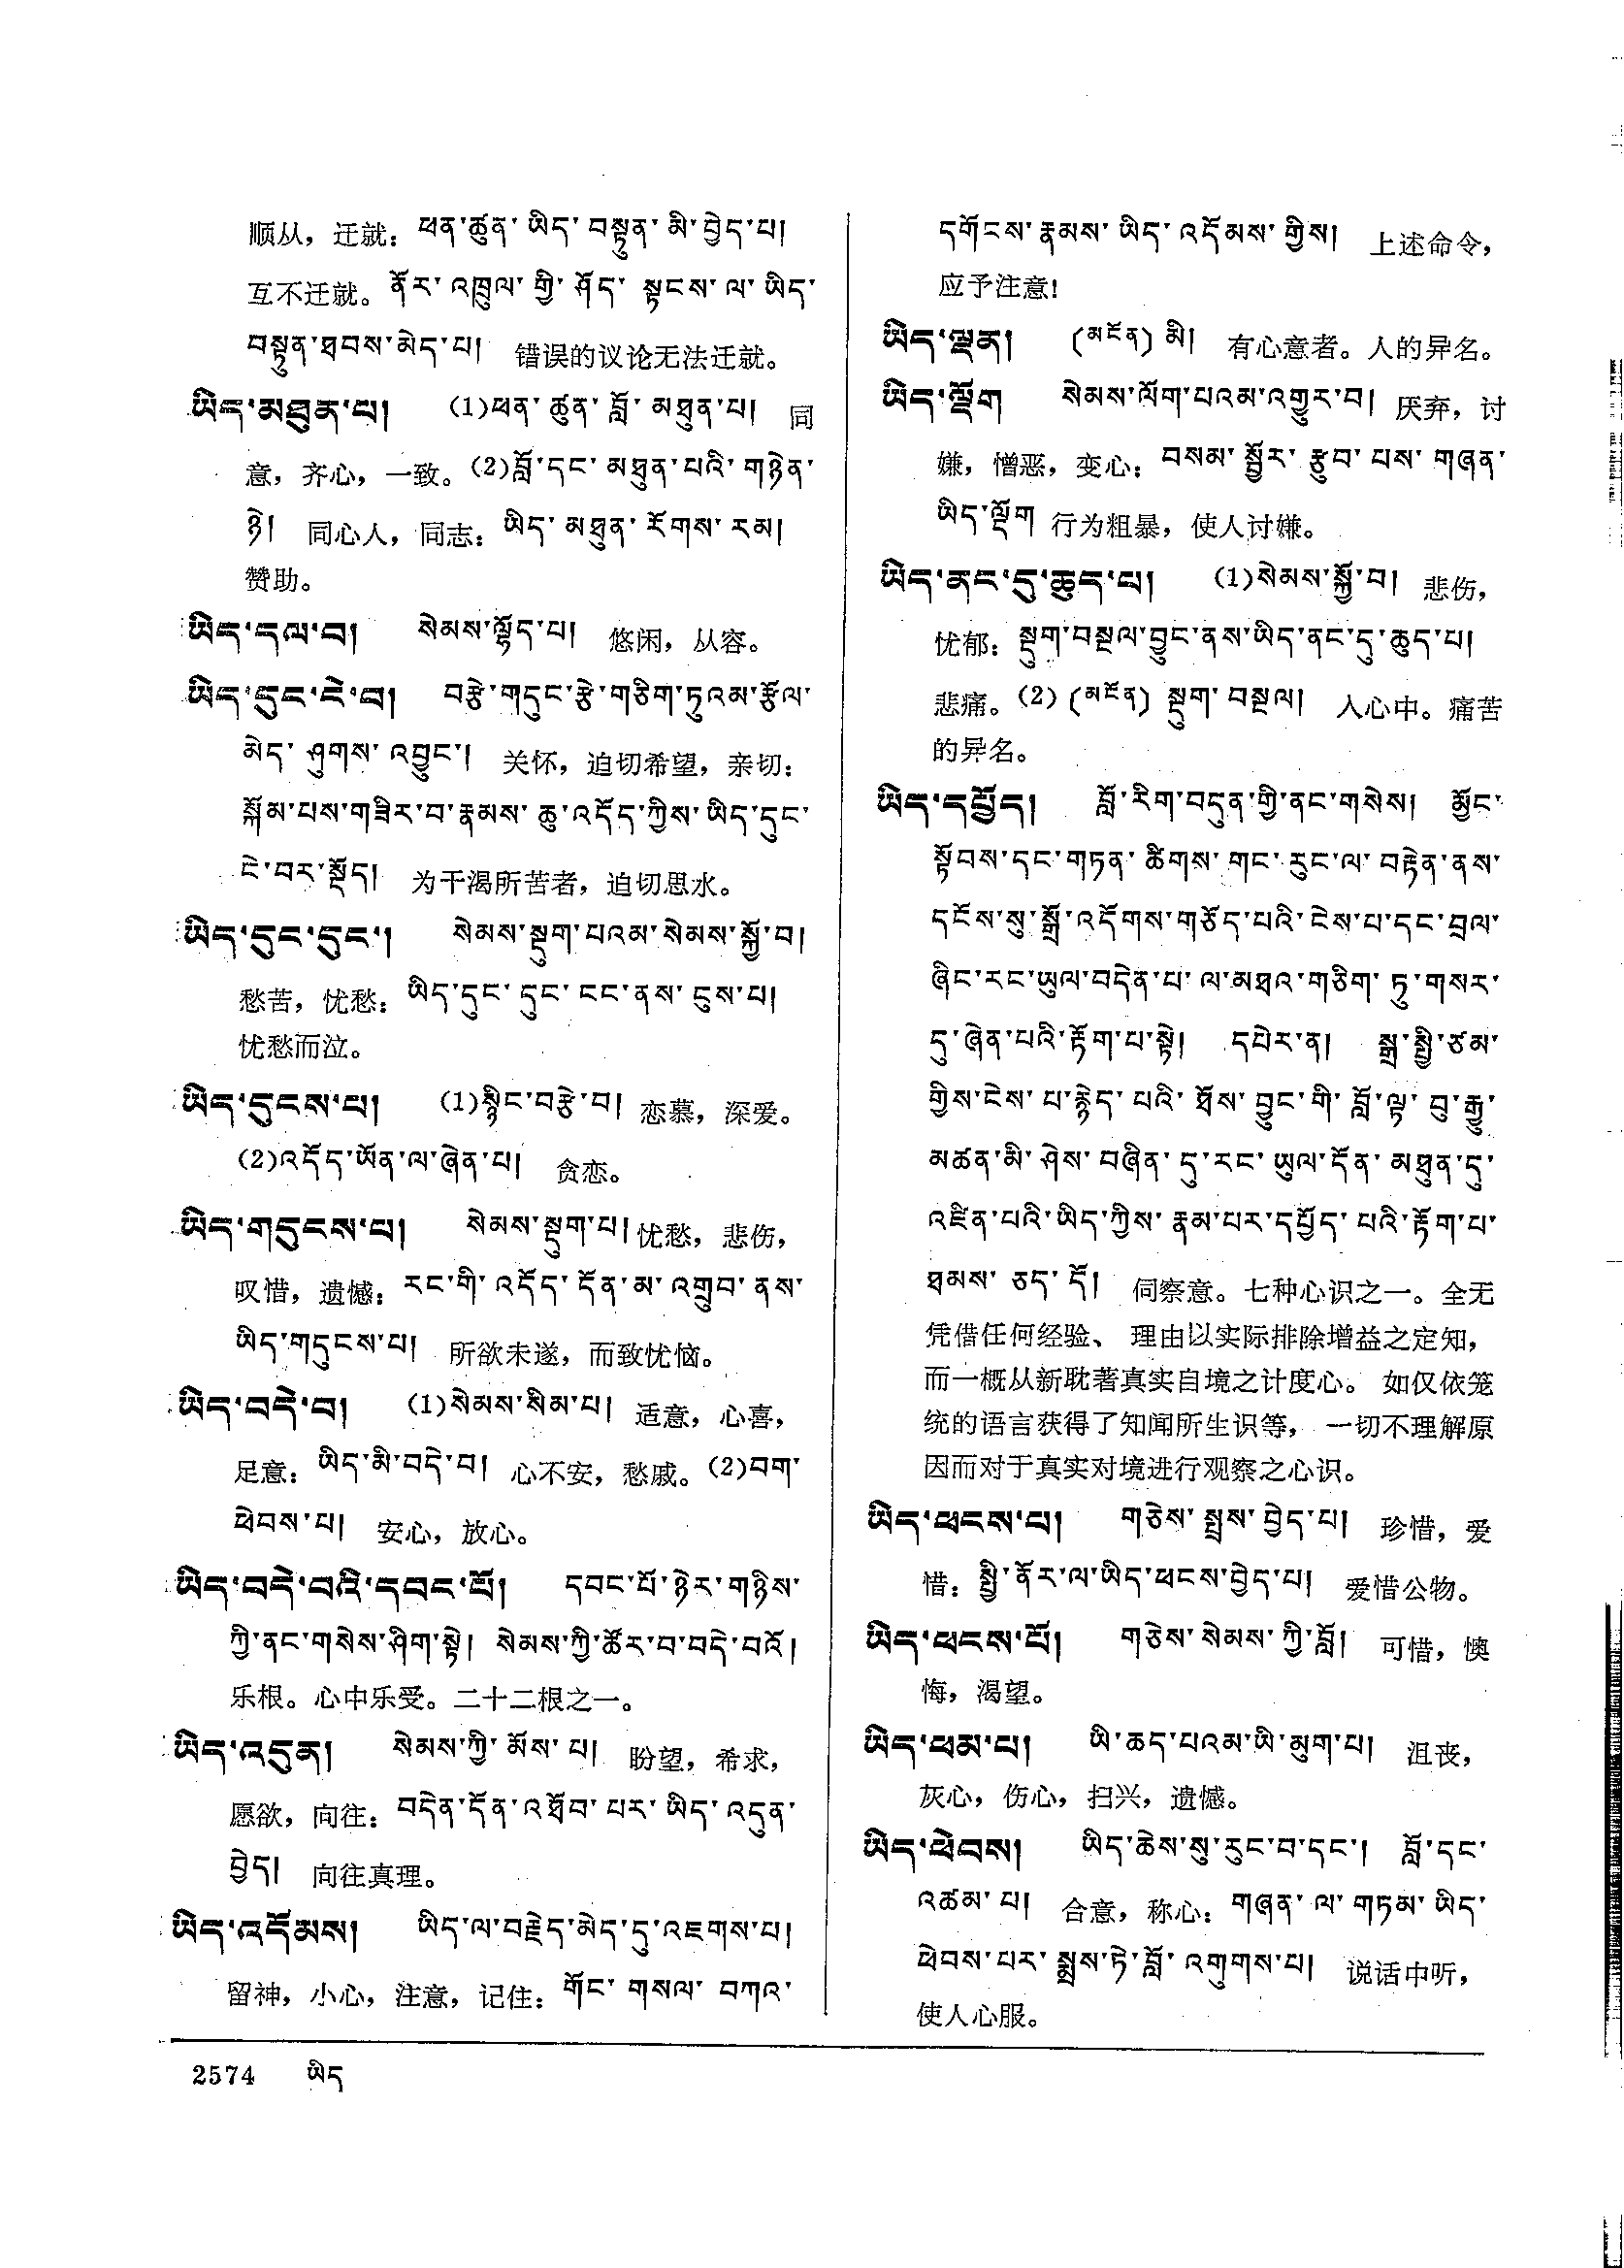 顺从，迁就：ཕན་ཚུན་ཡིད་བསྟུན་མི་བྱེད་པ།
互不迁就。ནོར་འཁྲུལ་གྱི་ཤོད་སྟངས་ལ་ཡིད་
བསྟུན་ཐབས་མེད་པ། 错误的议论无法迁就。
ཡིད་མཐུན་པ། (1)ཕན་ཚུན་བློ་མཐུན་པ། 同
意，齐心，一致。(2)བློ་དང་མཐུན་པའི་གཉེན་
ཉེ། 同心人，同志：ཡིད་མཐུན་རོགས་རམ།
赞助。
ཡིད་དལ་བ། སེམས་ལྷོད་པ། 悠闲，从容。
ཡིད་དུང་ངེ་བ། བརྩེ་གདུང་རྩེ་གཅིག་ཏུའམ་རྩོལ་
མེད་ཤུགས་འབྱུང་། 关怀，迫切希望，亲切：
སྐོམ་པས་གཟིར་བ་རྣམས་ཆུ་འདོད་ཀྱིས་ཡིད་དུང་
ངེ་བར་སྡོད། 为干渴所苦者，迫切思水。
ཡིད་དུང་དུང་། སེམས་སྡུག་པའམ་སེམས་སྐྱོ་བ།
愁苦，忧愁：ཡིད་དུང་དུང་ངང་ནས་ངུས་པ།
忧愁而泣。
ཡིད་དུངས་པ། (1)སྙིང་བརྩེ་བ། 恋慕，深爱。
(2)འདོད་ཡོན་ལ་ཞེན་པ། 贪恋。
ཡིད་གདུངས་པ། སེམས་སྡུག་པ། 忧愁，悲伤，
叹惜，遗憾：རང་གི་འདོད་དོན་མ་འགྲུབ་ནས་
ཡིད་གདུངས་པ། 所欲未遂，而致忧恼。
ཡིད་བདེ་བ། (1)སེམས་སིམ་པ། 适意，心喜，
足意：ཡིད་མི་བདེ་བ། 心不安，愁戚。(2)བག་
ཕེབས་པ། 安心，放心。
ཡིད་བདེ་བའི་དབང་པོ། དབང་པོ་ཉེར་གཉིས་
ཀྱི་ནང་གསེས་ཤིག་སྟེ། སེམས་ཀྱི་ཚོར་བ་བདེ་བའོ།
乐根。心中乐受。二十二根之一。
ཡིད་འདུན། སེམས་ཀྱི་མོས་པ། 盼望，希求，
愿欲，向往：བདེན་དོན་འཐོབ་པར་ཡིད་འདུན་
བྱེད། 向往真理。
ཡིད་འདོམས། ཡིད་ལ་བརྗེད་མེད་དུ་འཇགས་པ།
留神，小心，注意，记住：གོང་གསལ་བཀའ་
དགོངས་རྣམས་ཡིད་འདོམས་གྱིས། 上述命令，
应予注意!
ཡིད་ལྡན། (མངོན) མི། 有心意者。人的异名。
ཡིད་ལྡོག སེམས་ལོག་པའམ་འགྱུར་བ། 厌弃，讨
嫌，憎恶，变心：བསམ་སྦྱོར་རྩུབ་པས་གཞན་
ཡིད་ལྡོག 行为粗暴，使人讨嫌。
ཡིད་ནང་དུ་ཆུད་པ། (1)སེམས་སྐྱོ་བ། 悲伤，
忧郁：སྡུག་བསྔལ་བྱུང་ནས་ཡིད་ནང་དུ་ཆུད་པ།
悲痛。(2) (མངོན) སྡུག་བསྔལ། 人心中。痛苦
的异名。
ཡིད་དཔྱོད། བློ་རིག་བདུན་གྱི་ནང་གསེས། མྱོང་
སྟོབས་དང་གཏན་ཚིགས་གང་རུང་ལ་བརྟེན་ནས་
དངོས་སུ་སྒྲོ་འདོགས་གཅོད་པའི་ངེས་པ་དང་བྲལ་
ཞིང་རང་ཡུལ་བདེན་པ་ལ་མཐའ་གཅིག་ཏུ་གསར་
དུ་ཞེན་པའི་རྟོག་པ་སྟེ། དཔེར་ན། སྒྲ་སྤྱི་ཙམ་
གྱིས་ངེས་པ་རྙེད་པའི་ཐོས་བྱུང་གི་བློ་ལྟ་བུ་རྒྱུ་
མཚན་མི་ཤེས་བཞིན་དུ་རང་ཡུལ་དོན་མཐུན་དུ་
འཛིན་པའི་ཡིད་ཀྱིས་རྣམ་པར་དཔྱོད་པའི་རྟོག་པ་
ཐམས་ཅད་དོ། 伺察意。七种心识之一。全无
凭借任何经验、理由以实际排除增益之定知，
而一概从新耽著真实自境之计度心。如仅依笼
统的语言获得了知闻所生识等，一切不理解原
因而对于真实对境进行观察之心识。
ཡིད་ཕངས་པ། གཅེས་སྤྲས་བྱེད་པ། 珍惜，爱
惜：སྤྱི་ནོར་ལ་ཡིད་ཕངས་བྱེད་པ། 爱惜公物。
ཡིད་ཕངས་པོ། གཅེས་སེམས་ཀྱི་བློ། 可惜，懊
悔，渴望。
ཡིད་ཕམ་པ། ཡི་ཆད་པའམ་ཡི་མུག་པ། 沮丧，
灰心，伤心，扫兴，遗憾。
ཡིད་ཕེབས། ཡིད་ཆེས་སུ་རུང་བ་དང་། བློ་དང་
འཚམ་པ། 合意，称心：གཞན་ལ་གཏམ་ཡིད་
ཕེབས་པར་སྨྲས་ཏེ་བློ་འགུགས་པ། 说话中听，
使人心服。
2574 ཡིད